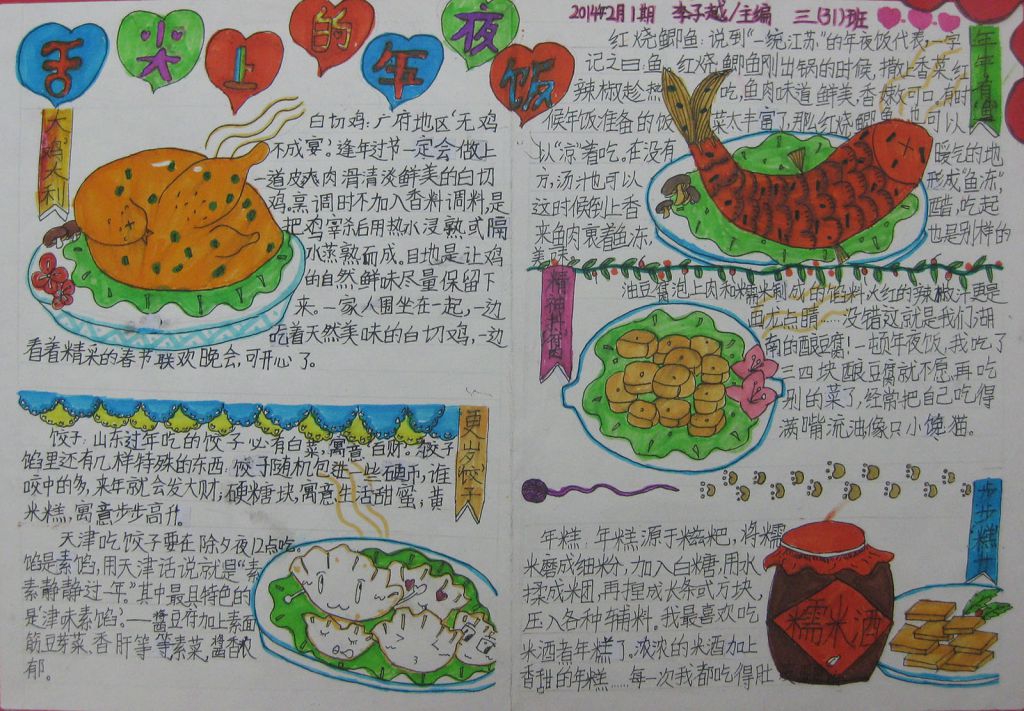 舌尖上的年夜饭
2014年2月1期 李子越/主编 三(31)班
大鸡大利
白切鸡:广府地区“无鸡
不成宴”。逢年过节一定会做上
一道皮爽肉滑清淡鲜美的白切
鸡。烹调时不加入香料调料,是
把鸡宰杀后用热水浸熟,或隔
水蒸熟而成。目地是让鸡
的自然鲜味尽量保留下
来。一家人围坐在一起,一边
吃着天然美味的白切鸡,一边
看着精采的春节联欢晚会,可开心了。
更岁饺子
饺子:山东过年吃的饺子必有白菜,寓意“百财”。饺子
馅里还有几样特殊的东西:饺子随机包进一些硬币,谁
咬中的多,来年就会发大财;硬糖块,寓意生活甜蜜;黄
米糕,寓意步步高升。
天津吃饺子要在除夕夜12点吃。
馅是素馅,用天津话说就是“素
素静静过一年。”其中最具特色的
是“津味素馅”。——酱豆府加上素面
筋豆芽菜、香肝等等素菜,酱香浓
郁。
年年有鱼
红烧鲫鱼:说到“一统江苏”的年夜饭代表,一字
记之曰鱼。红烧鲫鱼刚出锅的时候,撒上香菜,红
辣椒趁热吃,鱼肉味道鲜美,香嫩可口。有时
候年饭准备的饭菜太丰富了,那红烧鲫鱼也可以
以“凉”着吃。在没有暖气的地
方,汤汁也可以形成“鱼冻”,
这时候倒上香醋,吃起
来鱼肉裹着鱼冻,也是别样的
美味。
油豆腐泡上肉和糯米制成的馅料,火红的辣椒汁更是
画龙点睛……没错这就是我们湖
南的酿豆腐!一顿年夜饭,我吃了
三四块酿豆腐就不愿再吃
别的菜了,经常把自己吃得
满嘴流油,像只小馋猫。
步步糕升
年糕:年糕源于糍粑,将糯
米磨成细粉,加入白糖,用水
揉成米团,再捏成长条或方块,
压入各种辅料。我最喜欢吃
米酒煮年糕了。浓浓的米酒加上
香甜的年糕……每一次我都吃得肚
糯米酒